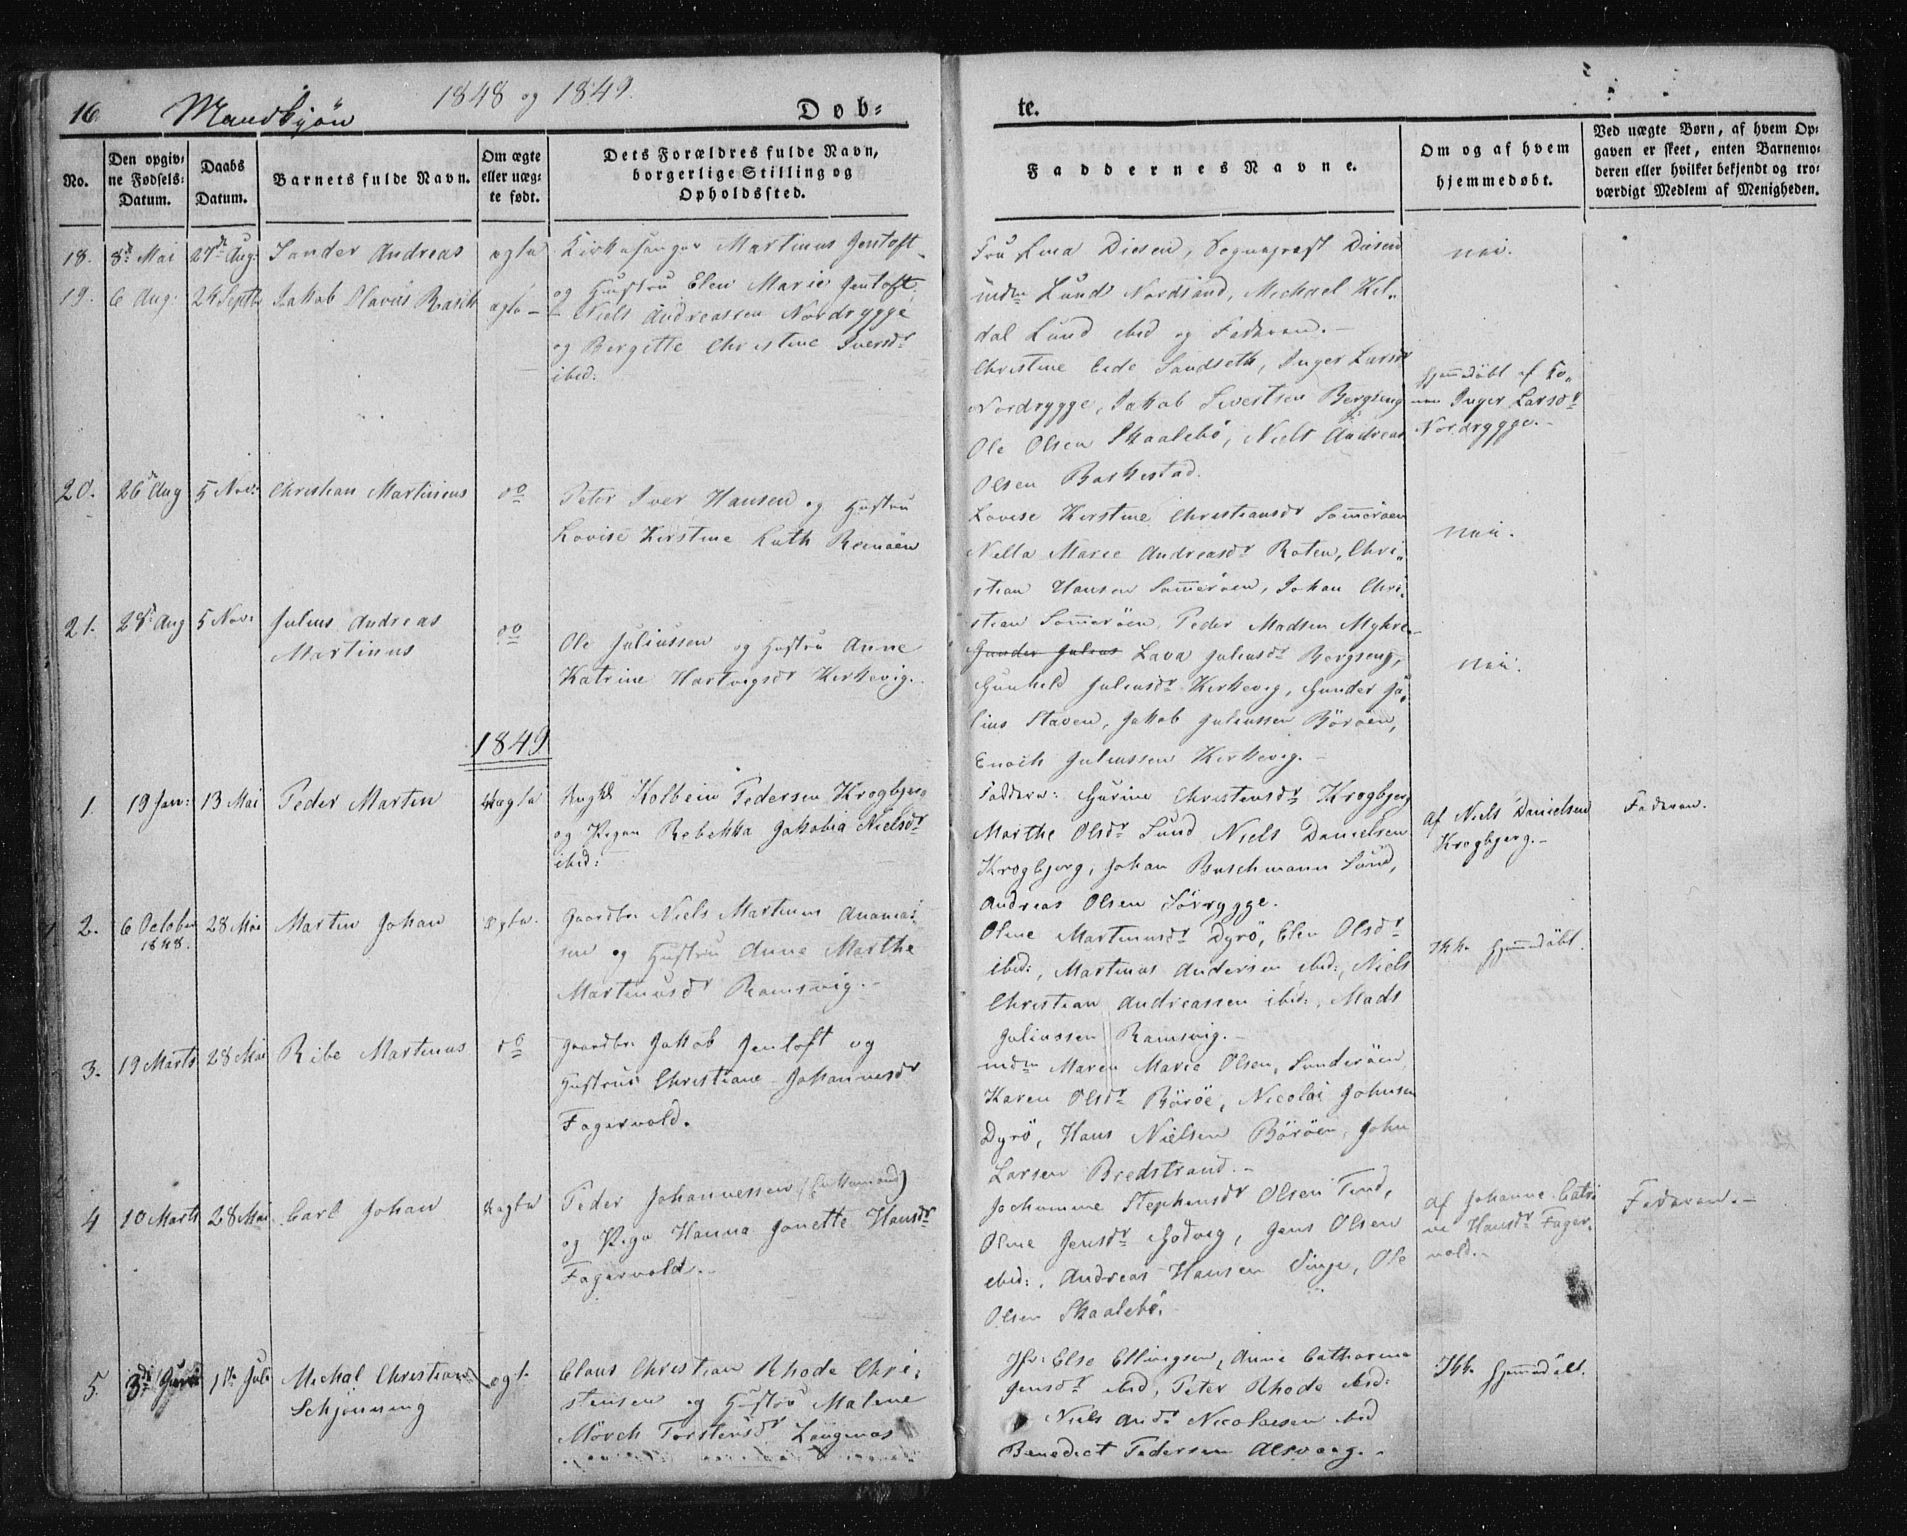 16 Mandkjøn 1848 og 1849. Døb-te.
No. | Den opgivne Fødsels-Datum. | Daabs Datum. | Barnets fulde Navn. | Om ægte eller uægte født. | Dets Forældres fulde Navn, borgerlige Stilling og Opholdssted. | Faddernes Navne. | Om og af hvem hjemmedøbt. | Ved uægte Børn, af hvem Opgaven er skeet, enten Barnemoderen eller hvilket bekjendt og troværdigt Medlem af Menigheden.
18. 8de Mai 27de Aug: Sander Andreas ægte
Kirkesanger Martinus Jentoft
og Hustru Elen Marie Jentoft.
Fru Diesen, Sognepræst Diesen
mdm Lund Nordsand, Michael Kil-
dal Lund ibid og Faderen.-
nei.
19. 6 Aug: 24 Septb Jakob Olavus Rasch ægte-
Niels Andreassen Nordrygge
og Bergitte Christine Iversdr
ibid:
Christine Eide Sandseth, Inger Larsdr
Nordrygge, Jakob Sivertsen Bergseng
Ole Olsen Skaalebö, Niels Andreas
Olsen Barkestad.
Hjemmedöbt af Ko-
nen Inger Larsdr
Nordrygge.-
20. 26de Aug 5 Nov: Christian Martinus do
Peter Iver Hansen og Hustru
Lovise Kirstine
Lovise Kirstine Christiansdr Sommeröen
Nella Marie Andreasdr Roten, Chri-
stian Hansen Sommeröen, Johan Chri-
stian Sommeröen, Peder Madsen Myhre.-
nei.
21. 28de Aug 5 Nov: Julius Andreas
Martinus do
Ole Juliussen og Hustru Anne
Katrine Hartvigsdr Kirkevig.
Gunder Julius Lava Juliusdr Bergseng,
Gunhild Juliusdr Kirkevig, Gunder Ju-
lius Staven, Jakob Juliussen Böröen,
Enoch Juliussen Kirkevig.-
nei.
1849
1. 19 Jan: 13 Mai Peder Martin Uægte
Ungkl Kolbein Pedersen Krogbjerg
og Pigen Rebekka Jakobia Nielsdr
ibid:
Faddere: Gurine Christensdr Krogbjerg
Marthe Olsdr Sund Niels Danielsen
Krogbjerg, Johan Buschmann Sund,
Andreas Olsen Sörrygge.
af Niels Danielsen
Krogbjerg.-
Faderen.
2. 6 October
1848. 28 Mai Martin Johan Ægte.
Gaardbr Niels Martinus Ananias-
sen og Hustru Anne Marthe
Martinusdr Ramsvig.-
Oline Martinusdr Dyrö, Elen Olsdr
ibid:, Martinus Andersen ibid:, Niels
Christian Andreassen ibid:, Mads
Juliussen Ramsvig.-
Ikke hjemmedöbt.
3. 19 Marts 28 Mai Ribe Martinus do
Gaardbr Jakob Jentoft og
Hustrue Christiane Johannesdr
Fagervold.
mdm Maren Marie Olsen, Sanderöen
Karen Olsdr Böröe, Nicolai Johnsen
Dyrö, Hans Nielsen Böröen, John
Larsen Bredstrand.-
4 10 Marts 28 Mai Carl Johan Uægte
Peder Johannessen (Enkemand)
og Pige Hanna Jonette Hansdr
Fagervold.-
Jochumine Stephensdr Olsen Tind,
Oline Jensdr Godvig, Jens Olsen
ibid:, Andreas Hansen Tinje, Ole
Olsen Skaalebö.
af Johanne Catri
ne Hansdr Fager-
vold.-
Faderen.-
5. 3de 1ste Juli Michal Christian
Schjönning ægt.
Claus Christian Rhode Chri-
stensen og Hustru Malene
Mörch Torstensdr Langenæs
Elso Ellingsen, Anne Catharina
Jensdr ibid, Peter Rhode ibid:
Niels Andr Nicolaisen ibid
Benedict Pedersen Alsvaag.-
Ikke hjemmedöbt.